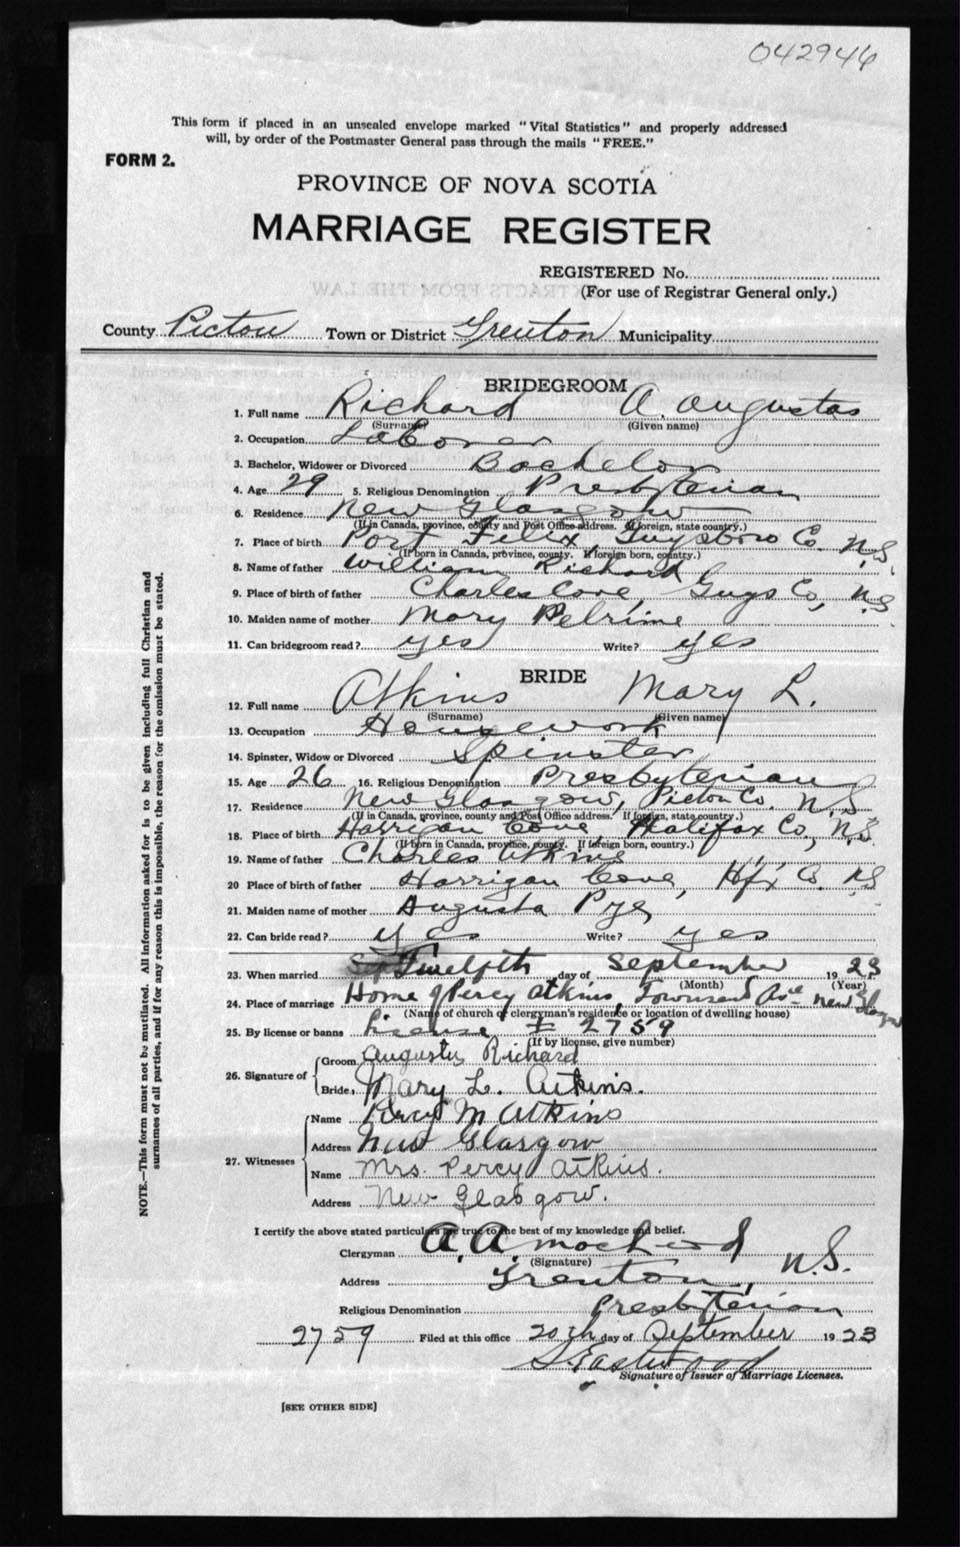 042946
This form if placed in an unsealed envelope marked "Vital Statistics" and properly addressed
will, by order of the Postmaster General pass through the mails "FREE."
FORM 2.
PROVINCE OF NOVA SCOTIA
MARRIAGE REGISTER
REGISTERED No.
(For use of Registrar General only.)
County Pictou Town or District Trenton Municipality
BRIDEGROOM
1. Full name Richard A. Augustas
(Surname) (Given name)
2. Occupation Laborer
3. Bachelor, Widower or Divorced Bachelor
4. Age 29 5. Religious Denomination Presbyterian
6. Residence New Glasgow
(If in Canada, province, county and Post Office address. If foreign, state country.)
7. Place of birth Port Felix, Guysboro Co. N.S.
(If born in Canada, province, county. If foreign born, country.)
8. Name of father William Richard
9. Place of birth of father Charles Cove, Guys Co, N.S
10. Maiden name of mother Mary Pelrine
11. Can bridegroom read? yes Write? yes
BRIDE
12. Full name Atkins Mary L.
(Surname) (Given name)
13. Occupation Housework
14. Spinster, Widow or Divorced Spinster
15. Age 26 16. Religious Denomination Presbyterian
17. Residence New Glasgow, Pictou Co. N.S
(If in Canada, province, county and Post Office address. If foreign, state country.)
18. Place of birth Harrigan Cove, Halifax Co., N.S
(If born in Canada, province, county. If foreign born, country.)
19. Name of father Charles Atkins
20 Place of birth of father Harrigan Cove, Hfx Co. N.S
21. Maiden name of mother Augusta Pye
22. Can bride read? yes Write? yes
23. When married Twelfth day of September 1923
(Month) (Year)
24. Place of marriage Home of Percy Atkins, Townsend Ave New Glasgow
(Name of church or clergyman's residence or location of dwelling house)
25. By license or banns License # 2759
(If by license, give number)
26. Signature of Groom Augustus Richard
Bride, Mary L. Atkins.
27. Witnesses Name Percy M Atkins
Address New Glasgow
Name Mrs. Percy Atkins.
Address New Glasgow.
I certify the above stated particulars are true to the best of my knowledge and belief.
Clergyman A. A.
(Signature)
Address Trenton, N.S.
Religious Denomination Presbyterian
2759 Filed at this office 20th day of September 1923
S. Eastwood
Signature of Issuer of Marriage Licenses.
[SEE OTHER SIDE]
NOTE.—This form must not be mutilated. All information asked for is to be given including full Christian and
surnames of all parties, and if for any reason this is impossible, the reason for the omission must be stated.